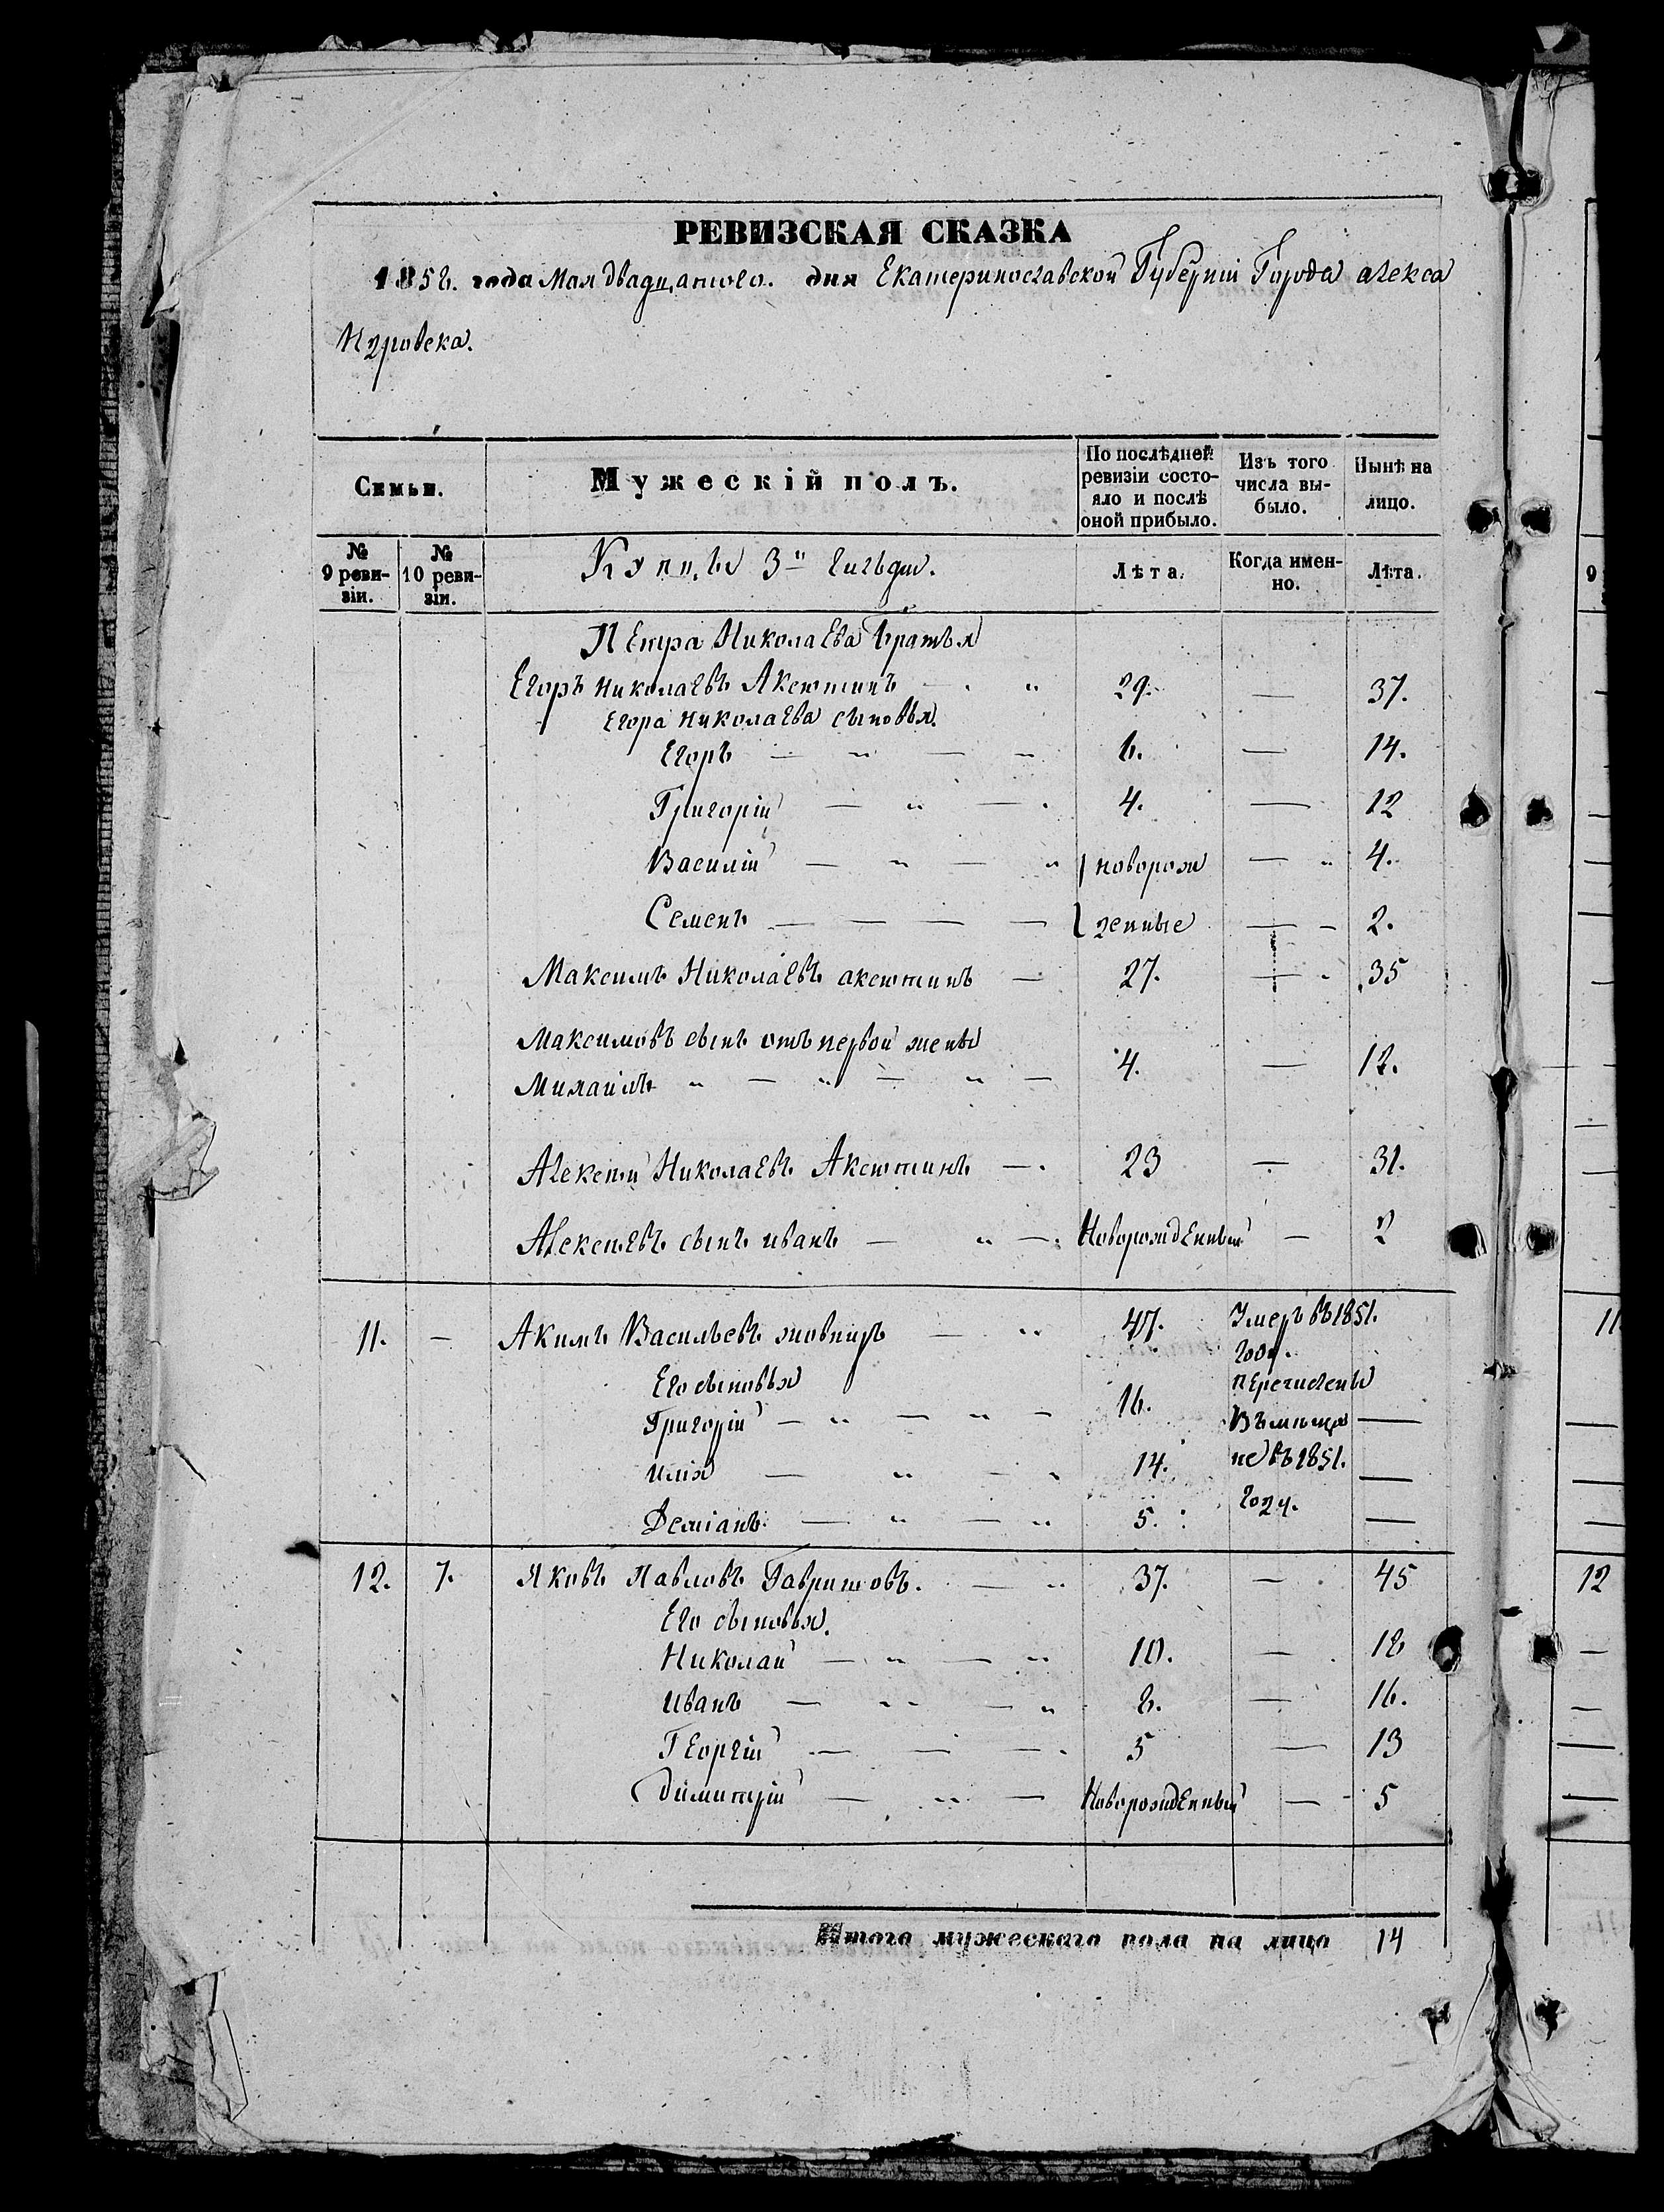 РЕВИЗСКАЯ СКАЗКА
1858. года Мая двадцатого. дня Екатеринославской Губерніи Города Алекса
ндровска.
Семьи.
Мужескій полъ.
По послѣдней ревизіи состо-
яло и послѣ оной прибыло.
Изъ того числа вы-
было.
Нынѣ на лицо.
№ 9 реви-
зіи.
№ 10 реви-
зіи.
Купцы 3й гильдіи.
Лѣта.
Когда имен-
но.
Лѣта.
Петра Николаева братья
Егоръ Николаевъ Аксютинъ — " 29. — 37.
Егора Николаева сыновья.
Егоръ — " — " 6. — 14.
Григорій — " — 4. — 12
Василій — " — " новорож — " 4.
Семенъ — — — — денные — - 2.
Максимъ Николаевъ Аксютинъ — 27. — 35
Максимовъ сынъ отъ первой жены
Михаилъ " — " — " — 4. — 12.
Алексѣй Николаевъ Аксютинъ — 23 — 31.
Алексѣевъ сынъ Иванъ — " — Новорожденный — 2
11. — Акимъ Васильевъ Жовниръ — " 47. Умеръ въ 1851.
году.
Его сыновья
Григорій — " — " — 16. перечислены
въ мѣща —
Илія — " — 14. не въ 1851. —
Деміанъ. — " — " 5. году. —
12. 7. Яковъ Павловъ Гавришовъ. — " 37. — 45
Его сыновья.
Николай — " — " 10. — 18
Иванъ — " — " 8. — 16.
Георгій — — — 5 — 13
Димитрій — " — Новорожденный — 5
Итого мужескаго пола на лицо 14
9
11
12